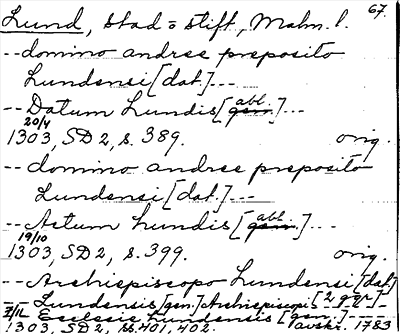 67.
Lund, stad = stift, Malm. l.
-- domino andree preposito
Lundensi [dat.] ---
-- Datum Lundis [gen. abl.] ---
20/4
1303, SD 2, s. 389. orig.
-- domino andree preposito
Lundensi [dat.] ---
-- Actum Lundis [gen. abl.] ---
19/10
1303, SD 2, s. 399. orig.
-- Archiepiscopo Lundensi [dat.]
-- Lundensis [gen.] Archiepiscopi [2 ggr] --
-- Ecclesie Lundensis [gen.] ---
1303, SD 2, ss. 401, 402. avskr. 1783